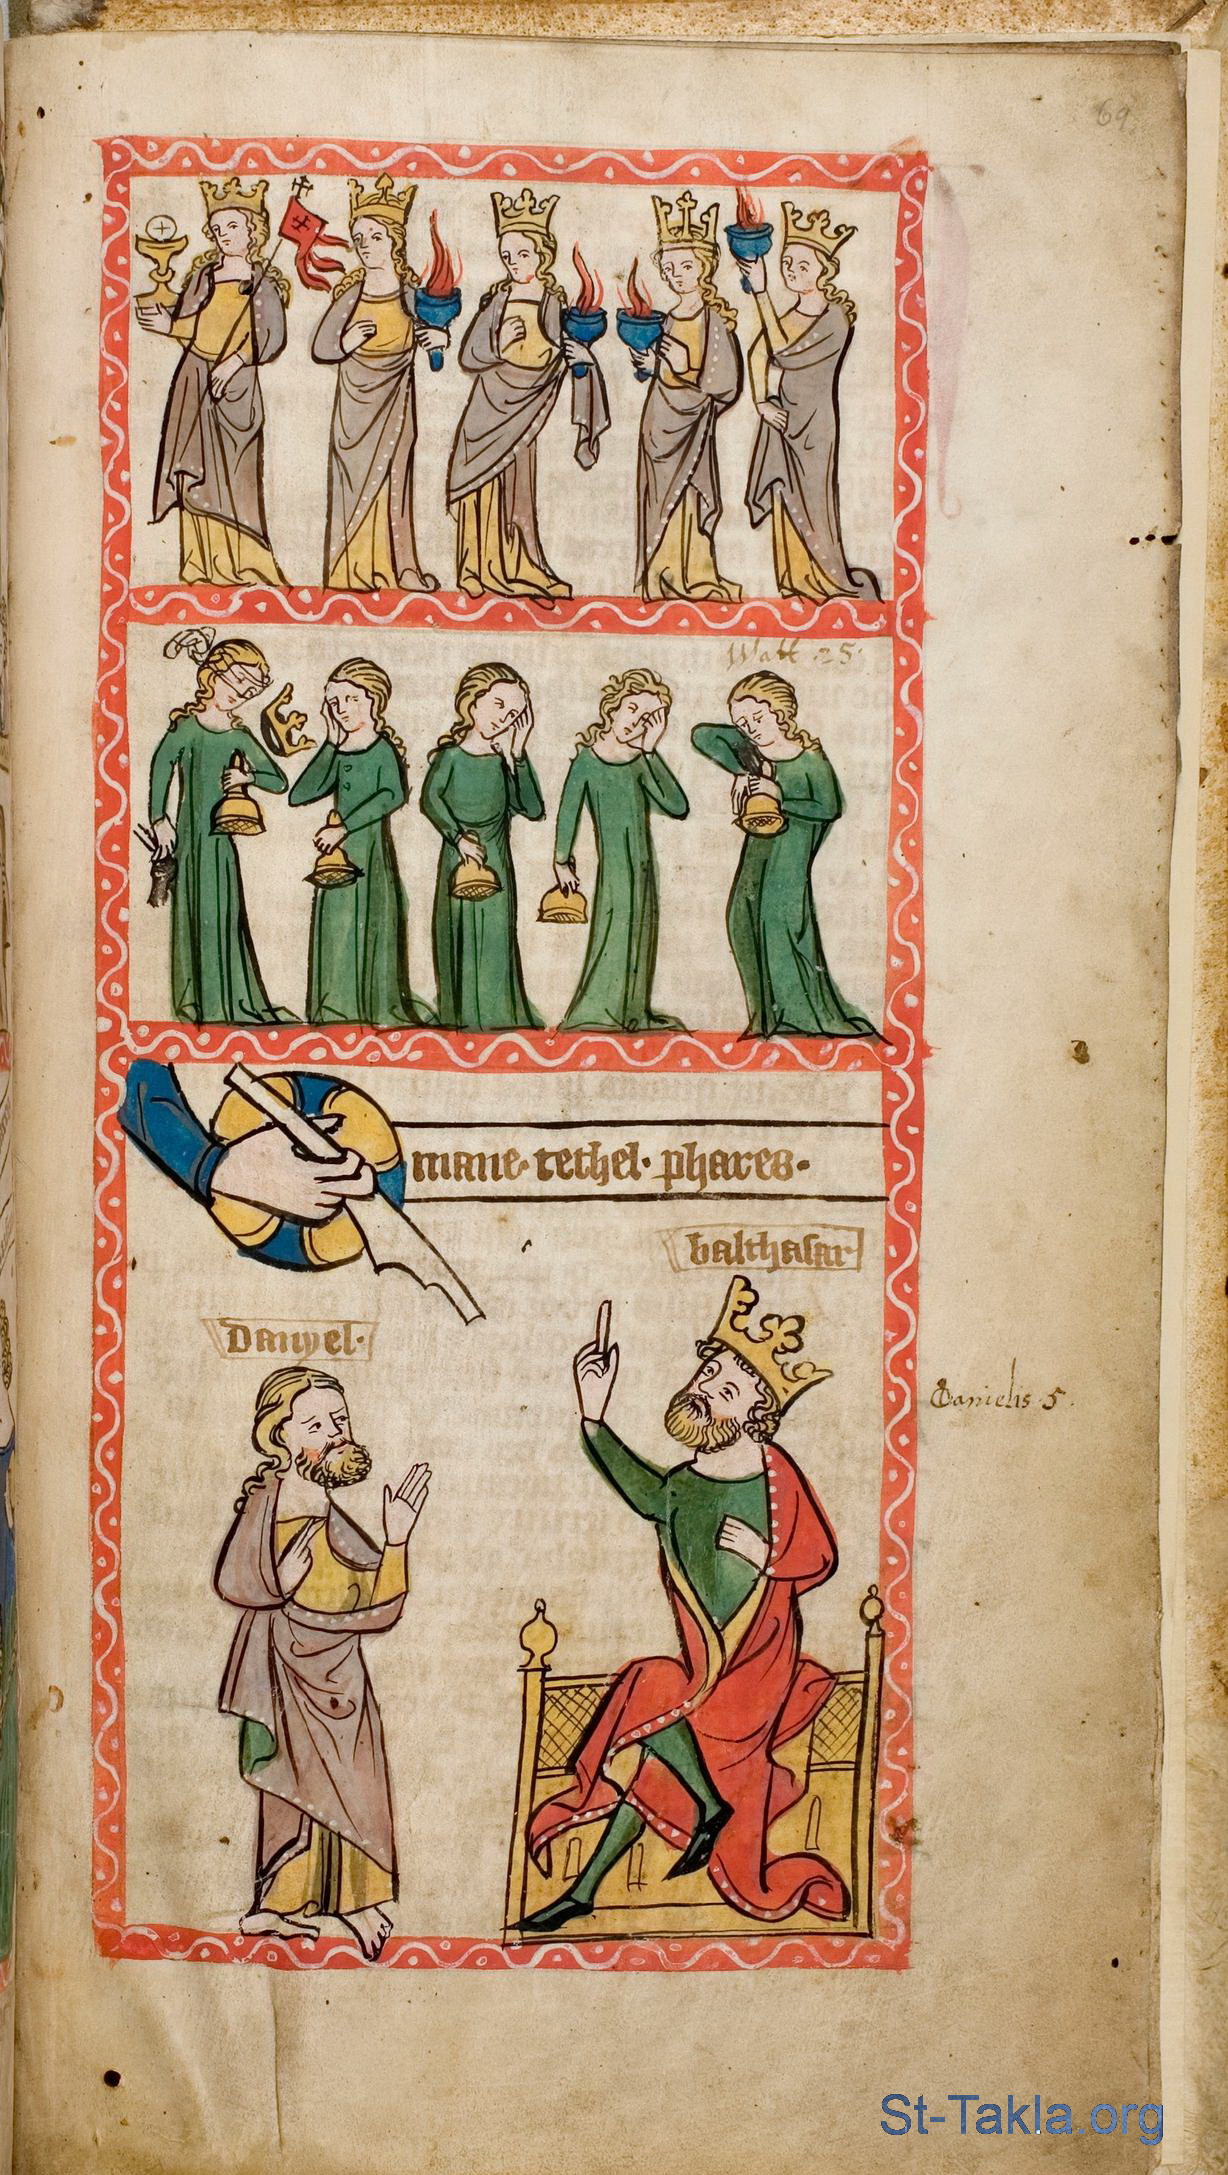 69
Matt 25
mane· techel· phares·
balthasar
Danyel·
Danielis 5.
St-Takla.org